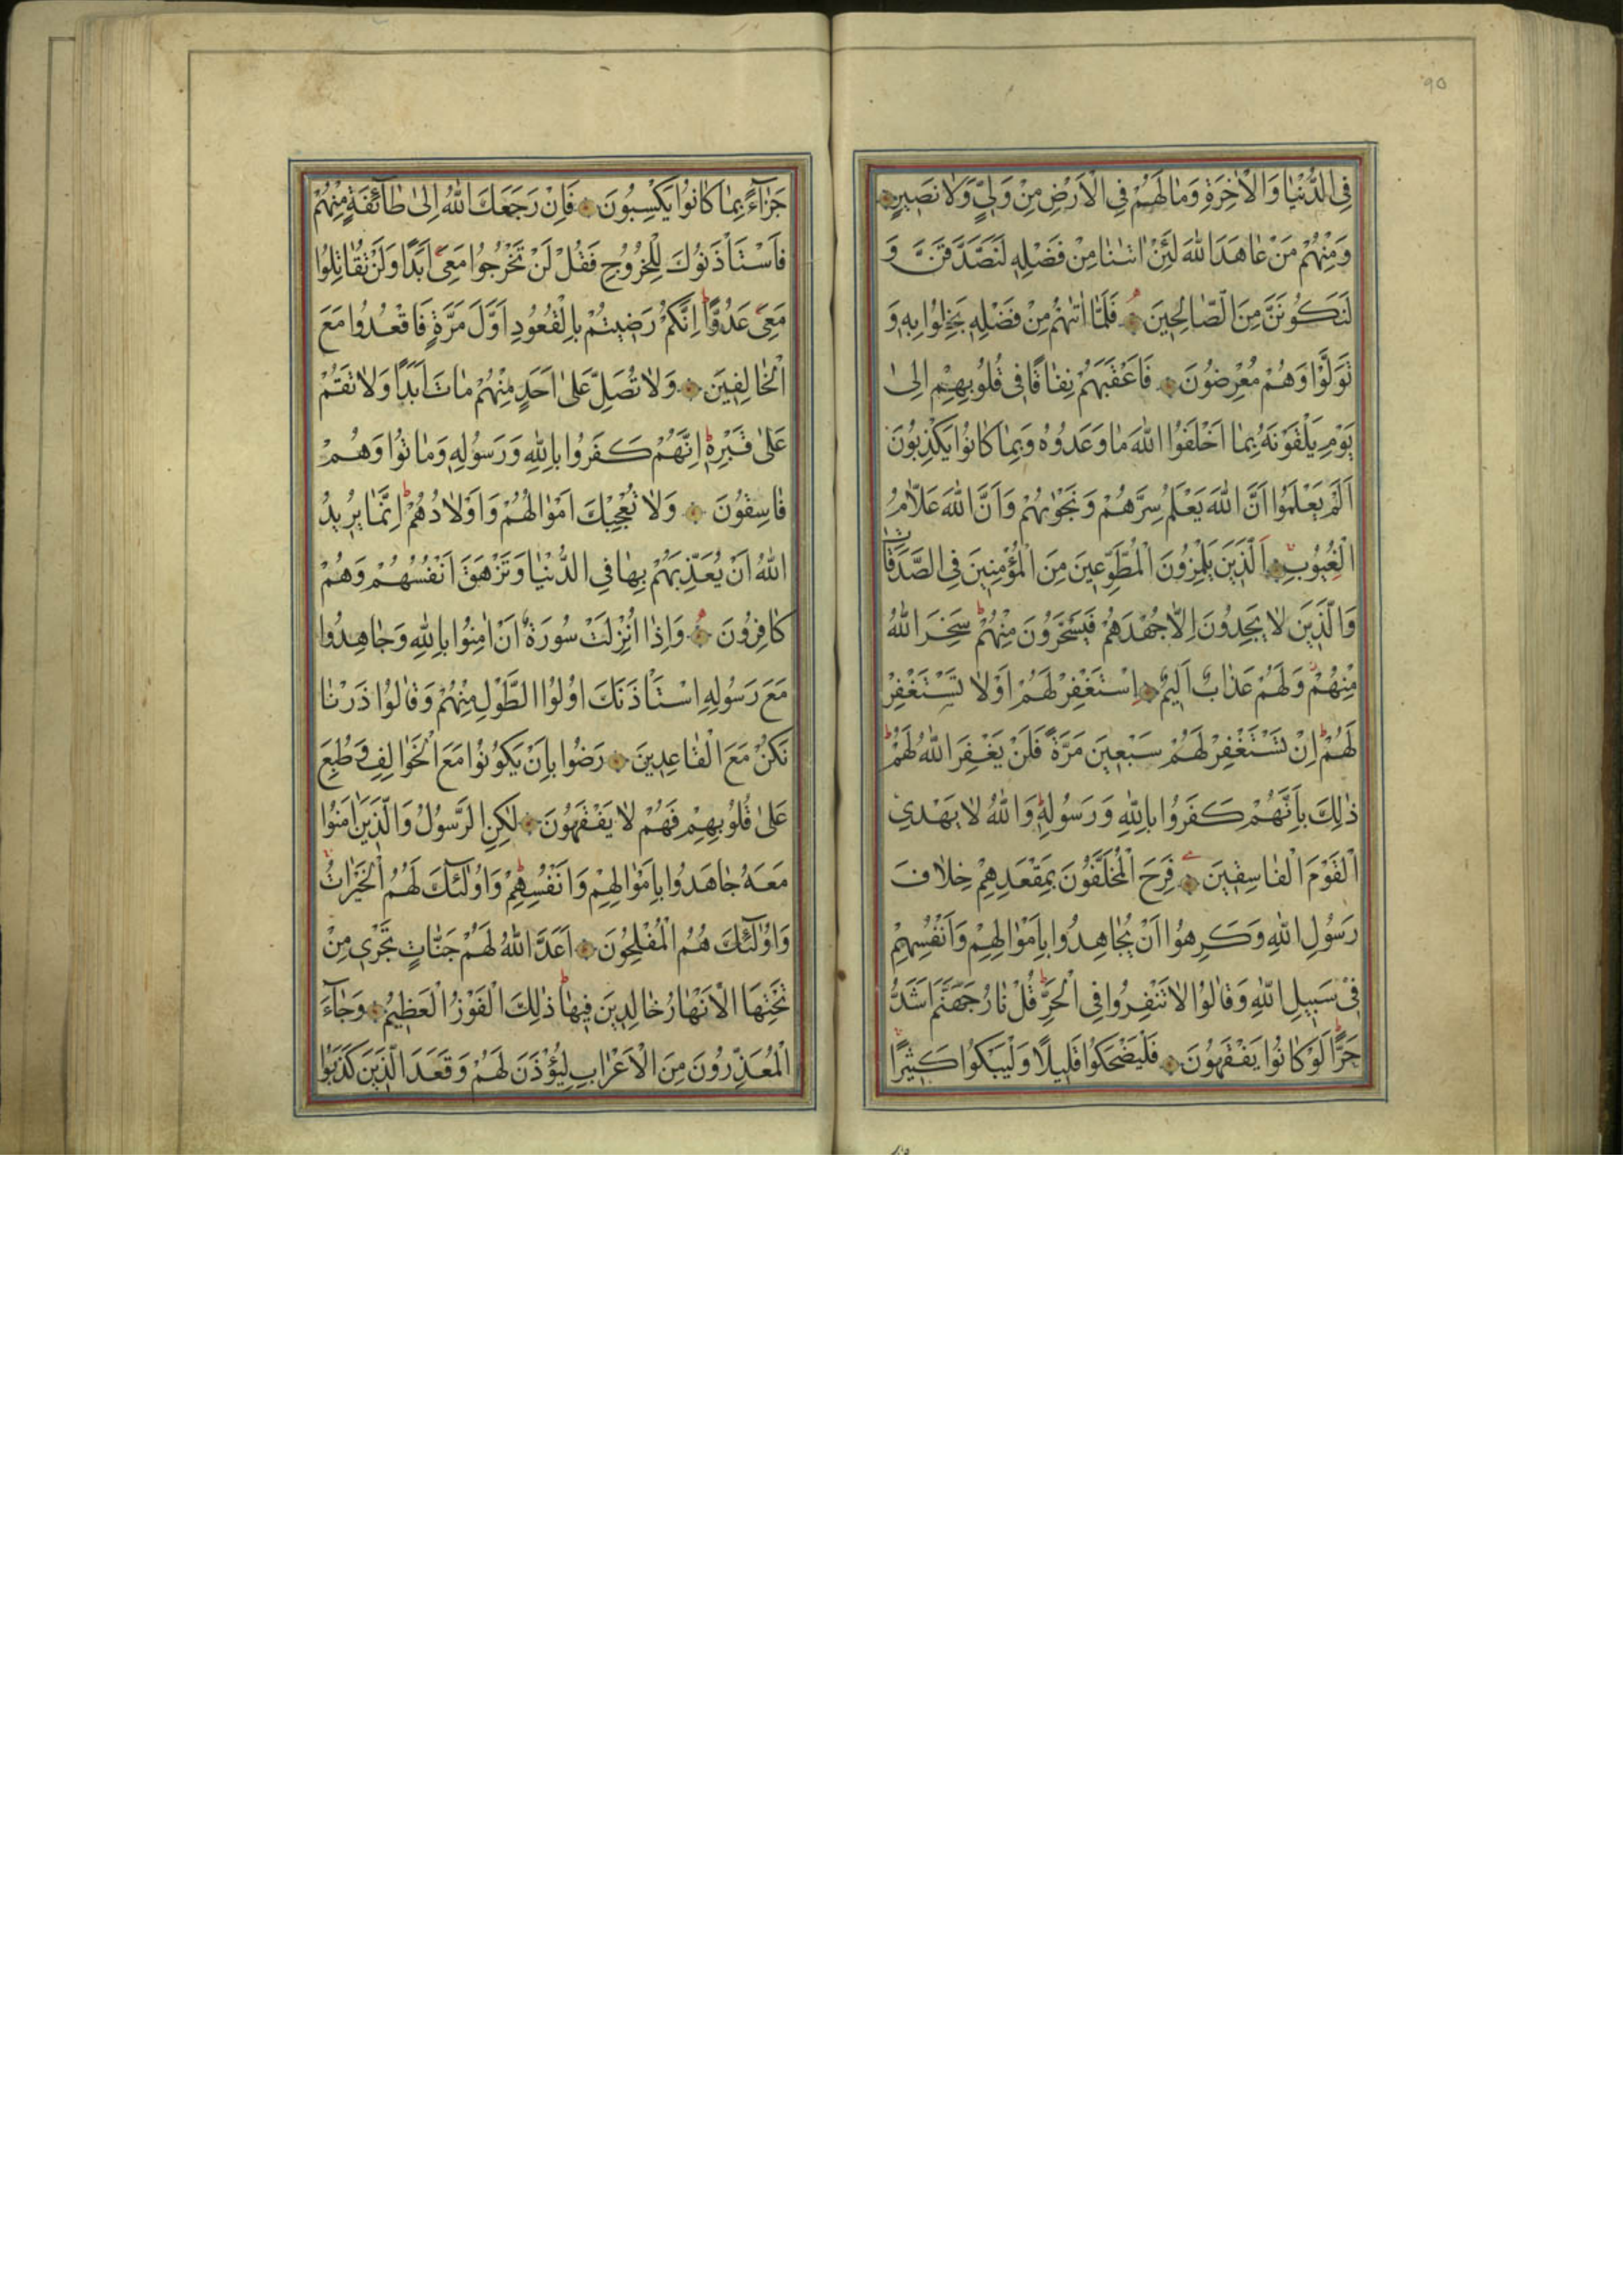 ٩٥
فِى الدُّنْيَا وَالْاٰخِرَةِ وَمَا لَهُمْ فِى الْاَرْضِ مِنْ وَلِيٍّ وَلَا نَصِيرٍ
وَمِنْهُمْ مَنْ عَاهَدَ اللّٰهَ لَئِنْ اٰتٰنَا مِنْ فَضْلِهِ لَنَصَّدَّقَنَّ وَ
لَنَكُونَنَّ مِنَ الصَّالِحِينَ فَلَمَّا اٰتٰهُمْ مِنْ فَضْلِهِ بَخِلُوا بِهِ وَ
تَوَلَّوْا وَهُمْ مُعْرِضُونَ فَاَعْقَبَهُمْ نِفَاقًا فِى قُلُوبِهِمْ اِلٰى
يَوْمِ يَلْقَوْنَهُ بِمَا اَخْلَفُوا اللّٰهَ مَا وَعَدُوهُ وَبِمَا كَانُوا يَكْذِبُونَ
اَلَمْ يَعْلَمُوا اَنَّ اللّٰهَ يَعْلَمُ سِرَّهُمْ وَنَجْوٰيهُمْ وَاَنَّ اللّٰهَ عَلَّامُ
الْغُيُوبِ اَلَّذِينَ يَلْمِزُونَ الْمُطَّوِّعِينَ مِنَ الْمُؤْمِنِينَ فِى الصَّدَقَاتِ
وَالَّذِينَ لَا يَجِدُونَ اِلَّا جُهْدَهُمْ فَيَسْخَرُونَ مِنْهُمْ سَخِرَ اللّٰهُ
مِنْهُمْ وَلَهُمْ عَذَابٌ اَلِيمٌ اِسْتَغْفِرْ لَهُمْ اَوْ لَا تَسْتَغْفِرْ
لَهُمْ اِنْ تَسْتَغْفِرْ لَهُمْ سَبْعِينَ مَرَّةً فَلَنْ يَغْفِرَ اللّٰهُ لَهُمْ
ذٰلِكَ بِاَنَّهُمْ كَفَرُوا بِاللّٰهِ وَرَسُولِهِ وَاللّٰهُ لَا يَهْدِى
الْقَوْمَ الْفَاسِقِينَ فَرِحَ الْمُخَلَّفُونَ بِمَقْعَدِهِمْ خِلَافَ
رَسُولِ اللّٰهِ وَكَرِهُوا اَنْ يُجَاهِدُوا بِاَمْوَالِهِمْ وَاَنْفُسِهِمْ
فِى سَبِيلِ اللّٰهِ وَقَالُوا لَا تَنْفِرُوا فِى الْحَرِّ قُلْ نَارُ جَهَنَّمَ اَشَدُّ
حَرًّا لَوْ كَانُوا يَفْقَهُونَ فَلْيَضْحَكُوا قَلِيلًا وَلْيَبْكُوا كَثِيرًا
جَزَاءً بِمَا كَانُوا يَكْسِبُونَ فَاِنْ رَجَعَكَ اللّٰهُ اِلٰى طَائِفَةٍ مِنْهُمْ
فَاسْتَأْذَنُوكَ لِلْخُرُوجِ فَقُلْ لَنْ تَخْرُجُوا مَعِىَ اَبَدًا وَلَنْ تُقَاتِلُوا
مَعِىَ عَدُوًّا اِنَّكُمْ رَضِيتُمْ بِالْقُعُودِ اَوَّلَ مَرَّةٍ فَاقْعُدُوا مَعَ
الْخَالِفِينَ وَلَا تُصَلِّ عَلٰى اَحَدٍ مِنْهُمْ مَاتَ اَبَدًا وَلَا تَقُمْ
عَلٰى قَبْرِهِ اِنَّهُمْ كَفَرُوا بِاللّٰهِ وَرَسُولِهِ وَمَاتُوا وَهُمْ
فَاسِقُونَ وَلَا تُعْجِبْكَ اَمْوَالُهُمْ وَاَوْلَادُهُمْ اِنَّمَا يُرِيدُ
اللّٰهُ اَنْ يُعَذِّبَهُمْ بِهَا فِى الدُّنْيَا وَتَزْهَقَ اَنْفُسُهُمْ وَهُمْ
كَافِرُونَ وَاِذَا اُنْزِلَتْ سُورَةٌ اَنْ اٰمِنُوا بِاللّٰهِ وَجَاهِدُوا
مَعَ رَسُولِهِ اسْتَأْذَنَكَ اُولُوا الطَّوْلِ مِنْهُمْ وَقَالُوا ذَرْنَا
نَكُنْ مَعَ الْقَاعِدِينَ رَضُوا بِاَنْ يَكُونُوا مَعَ الْخَوَالِفِ وَطُبِعَ
عَلٰى قُلُوبِهِمْ فَهُمْ لَا يَفْقَهُونَ لٰكِنِ الرَّسُولُ وَالَّذِينَ اٰمَنُوا
مَعَهُ جَاهَدُوا بِاَمْوَالِهِمْ وَاَنْفُسِهِمْ وَاُولٰئِكَ لَهُمُ الْخَيْرَاتُ
وَاُولٰئِكَ هُمُ الْمُفْلِحُونَ اَعَدَّ اللّٰهُ لَهُمْ جَنَّاتٍ تَجْرِى مِنْ
تَحْتِهَا الْاَنْهَارُ خَالِدِينَ فِيهَا ذٰلِكَ الْفَوْزُ الْعَظِيمُ وَجَاءَ
الْمُعَذِّرُونَ مِنَ الْاَعْرَابِ لِيُؤْذَنَ لَهُمْ وَقَعَدَ الَّذِينَ كَذَبُوا